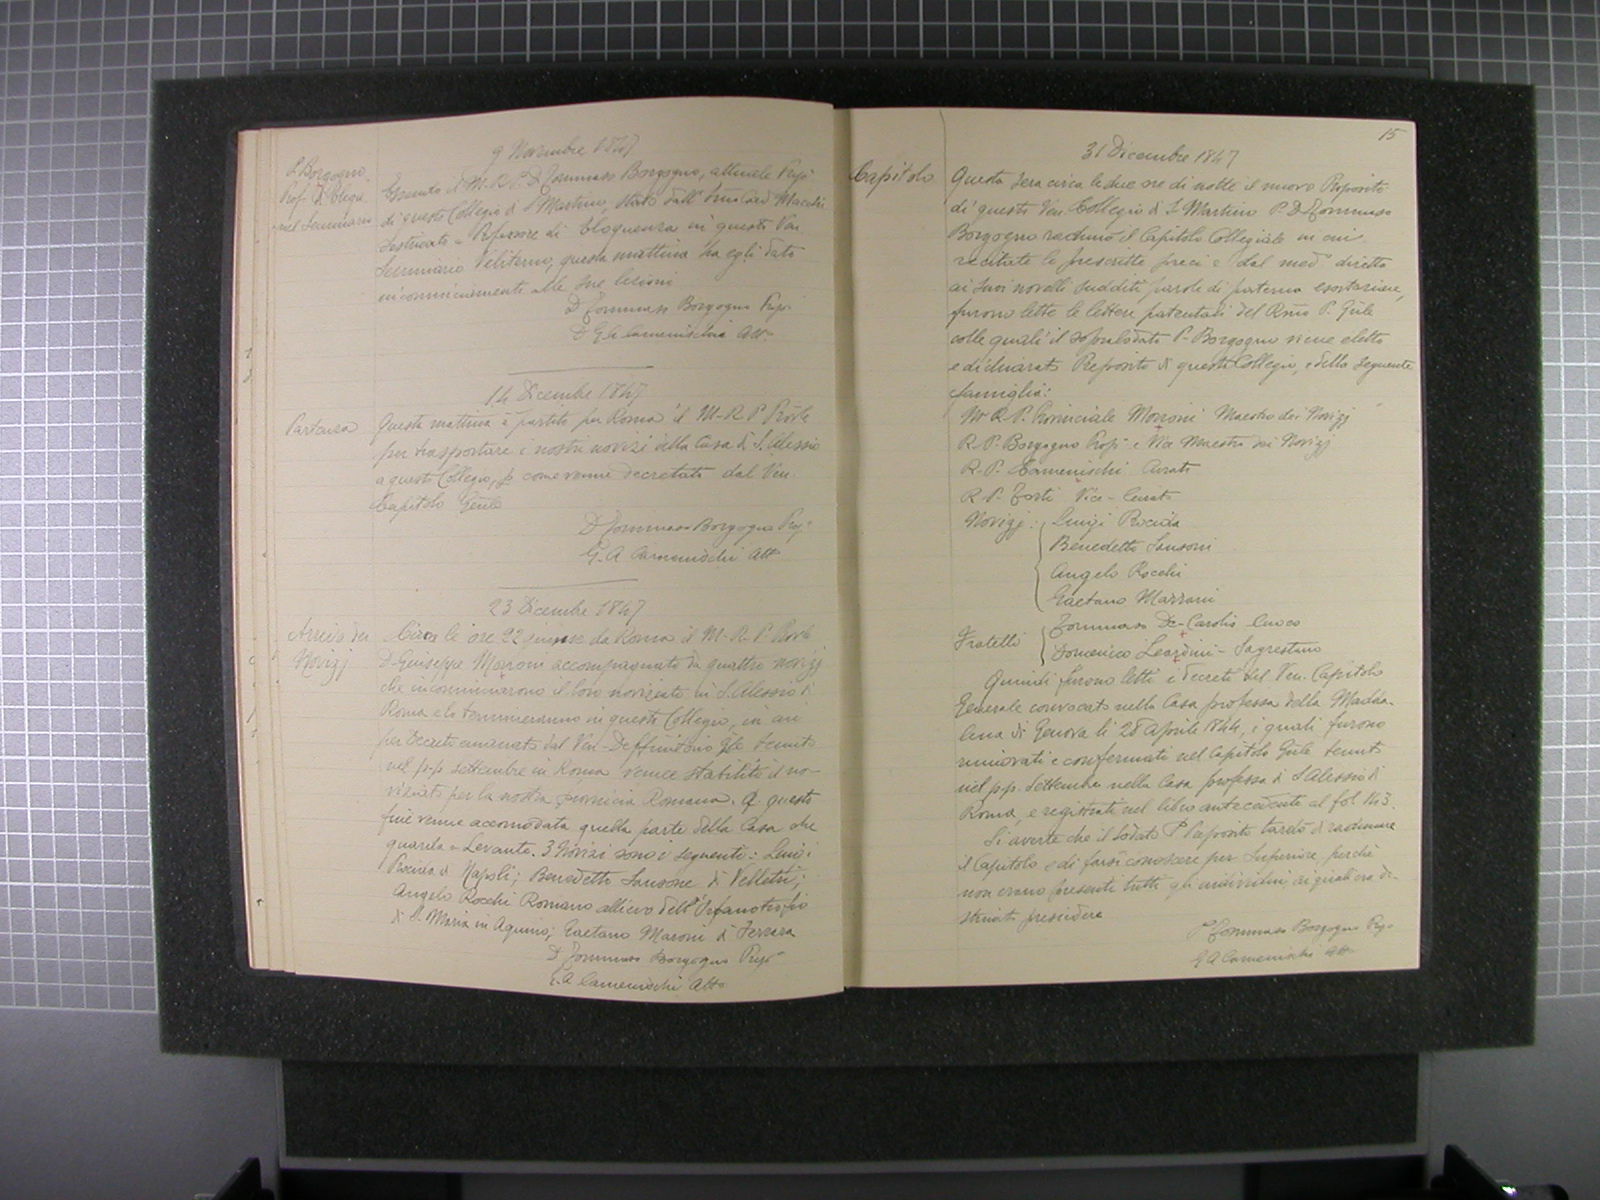 9 Novembre 1847
P. Borgogno
Prof. d'Eloqu.
nel Seminario
Essendo il M. R. P. D. Tommaso Borgogno, attuale Prep.
di questo Collegio di S. Martino, stato dall' Emo Card. Macchi
destinato a Professore di Eloquenza in questo Ven.
Seminario Veliterno, questa mattina ha egli dato
incominciamento alle sue lezioni
D. Tommaso Borgogno Prep.
D. G. A. Camenischi Att.
14 Dicembre 1847
Partenza
Questa mattina è partito per Roma il M. R. P. Prov.le
per trasportare i nostri novizi della Casa di S. Alessio
a questo Collegio, come venne decretato dal Ven.
Capitolo Gen.le
D. Tommaso Borgogno Prep.
G. A. Camenischi Att.
23 Dicembre 1847
Arrivo dei
Novizj
Circa le ore 22 giunse da Roma il M. R. P. Prov.le
D. Giuseppe Marroni accompagnato da quattro novizj
che incominciarono il loro noviziato in S. Alessio di
Roma e lo termineranno in questo Collegio, in cui
per decreto emanato dal Ven. Deffinitorio G.le tenuto
nel p.p. settembre in Roma venne stabilito il no-
viziato per la nostra provincia Romana. A questo
fine venne accomodata quella parte della Casa che
guarda a Levante. I Novizi sono i seguenti: Luigi
Procida di Napoli; Benedetto Sansone di Velletri;
Angelo Rocchi Romano allievo dell'Orfanotrofio
di S. Maria in Aquiro; Gaetano Maroni di Ferrara
D. Tommaso Borgogno Prep.
G. A. Camenischi Att.
15
31 Dicembre 1847
Capitolo
Questa sera circa le due ore di notte il nuovo Preposito
di questo Ven. Collegio di S. Martino P. D. Tommaso
Borgogno radunò il Capitolo Collegiale in cui
recitate le prescritte preci e dal med.o dirette
ai suoi novelli sudditi parole di paterna esortazione,
furono lette le lettere patentali del Rmo P. G.le
colle quali il sopralodato P. Borgogno viene eletto
e dichiarato Preposito di questo Collegio, e della seguente
famiglia:
M. R. P. Provinciale Morroni Maestro dei Novizj
R. P. Borgogno Prep. e Vice Maestro dei Novizj
R. P. Camenischi Curato
R. P. Forti Vice-Curato
Novizj: Luigi Procida
Benedetto Sansoni
Angelo Rocchi
Gaetano Marroni
Fratelli Tommaso De-Carolis Cuoco
Domenico Leardini - Sagrestano
Quindi furono letti i decreti del Ven. Capitolo
Generale convocato nella Casa professa della Madda-
lena di Genova li 28 Aprile 1844, i quali furono
rinnovati e confermati nel Capitolo G.le tenuto
nel p.p. Settembre nella Casa professa di S. Alessio di
Roma, e registrati nel libro antecedente al fol. 143.
Si averte che il lodato P. Preposito tardò di radunare
il Capitolo e di farsi conoscere per Superiore, perchè
non erano presenti tutti gli individui ai quali era de-
stinato presiedere
P. Tommaso Borgogno Prep.
G. A. Camenischi Att.